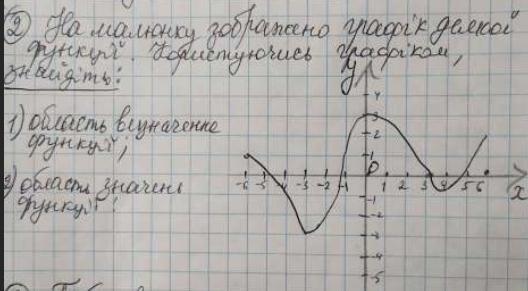 ② На малюнку зображено графік деякої
функції. Користуючись графіком,
знайдіть:
1) область визначення
функції;
2) область значень
функції!
y
4
3
2
1
0
-6 -5 -4 -3 -2 -1 1 2 3 4 5 6 x
-1
-2
-3
-4
-5